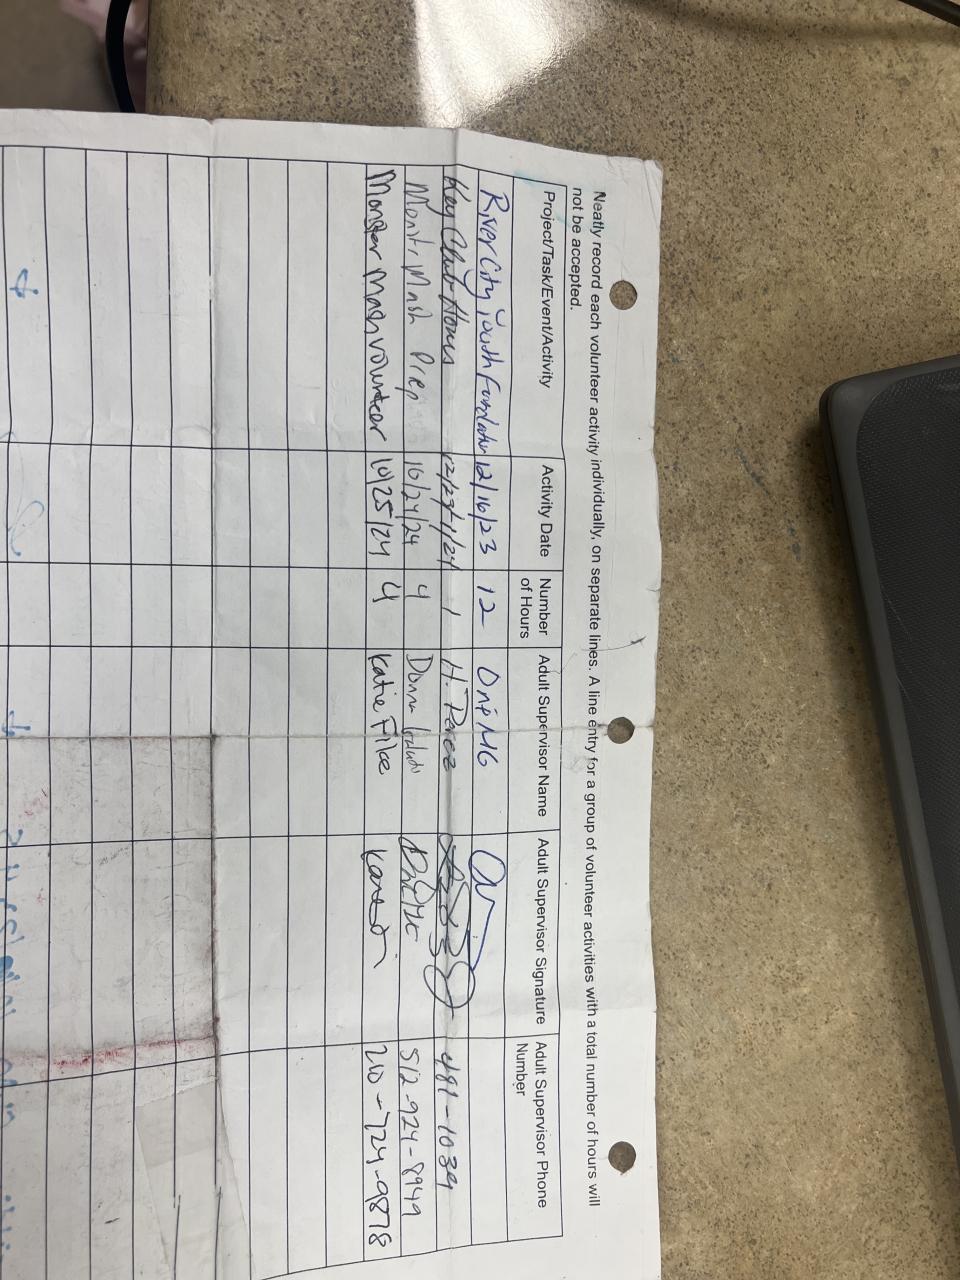 Neatly record each volunteer activity individually, on separate lines. A line entry for a group of volunteer activities with a total number of hours will
not be accepted.
Project/Task/Event/Activity Activity Date Number of Hours Adult Supervisor Name Adult Supervisor Signature Adult Supervisor Phone Number
River City Youth 12/16/23 12
Key Club Hours 12/23-1/24 1 H. Perez 481-1039
Mash Prep 10/24/24 4 Donna 512-924-8949
Monster Mash volunteer 10/25/24 4 Katie 210-724-9878